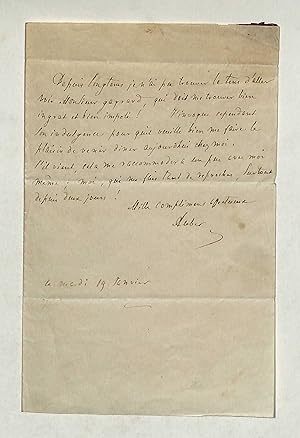 Depuis longtems je n'ai pu trouver le tems d'aller
voir Monsieur gayrard, qui doit me trouver bien
ingrat et bien impoli! J'invoque cependant
son indulgence pour qu'il veuille bien me faire le
plaisir de venir diner aujourd'hui chez moi.
S'il vient, cela me raccommodera un peu avec moi
même; moi, qui me fais tant de reproches, surtout
depuis deux jours!
Mille complimens
Auber
ce mardi 19 Janvier